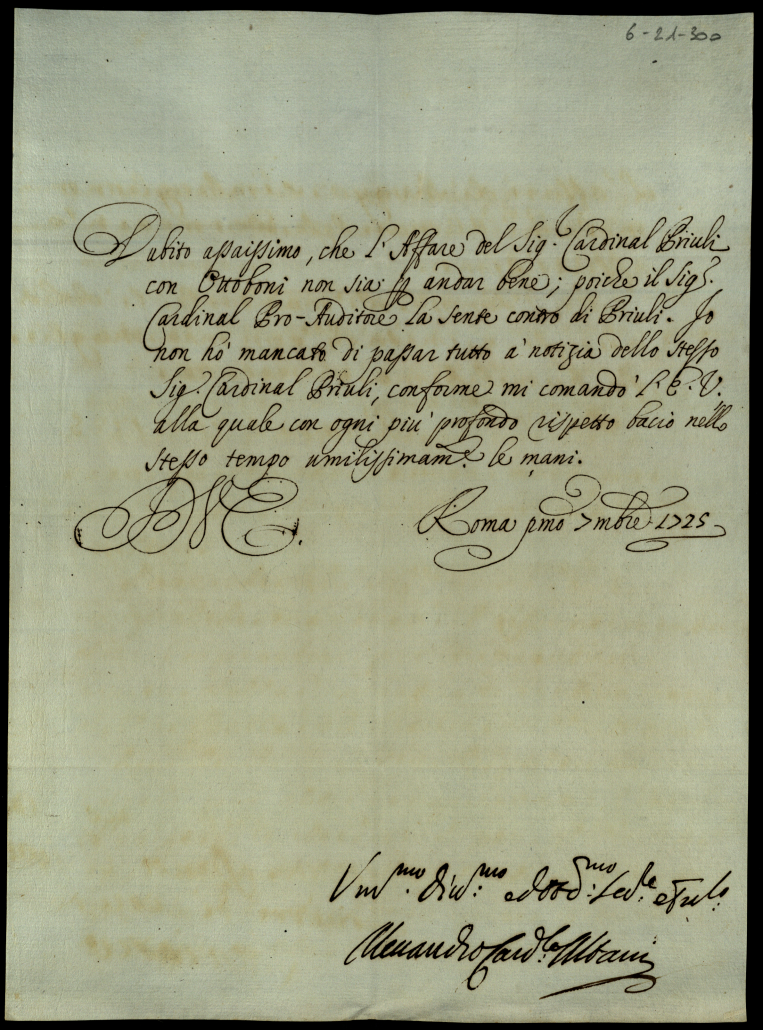 6-21-300
Dubito assaissimo, che l'Affare del Sig.r Cardinal Priuli
con Ottoboni non sia p andar bene; poiche il Sig.r
Cardinal Pro-Auditore la sente contro di Priuli. Io
non hò mancato di passar tutto à notizia dello stesso
Sig.r Cardinal Priuli, conforme mi comandò l'E.V.
alla quale con ogni più profondo rispetto bacio nello
stesso tempo umilissimam.e le mani.
Roma pmo 7mbre 1725
Um.mo Div.mo ed Obb.mo
Alessandro Card.le Albani